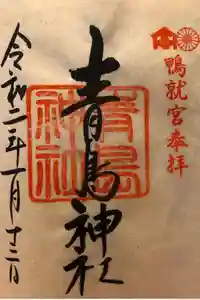 鴨就宮奉拝
青島神社
青島
神社
令和二年一月十三日